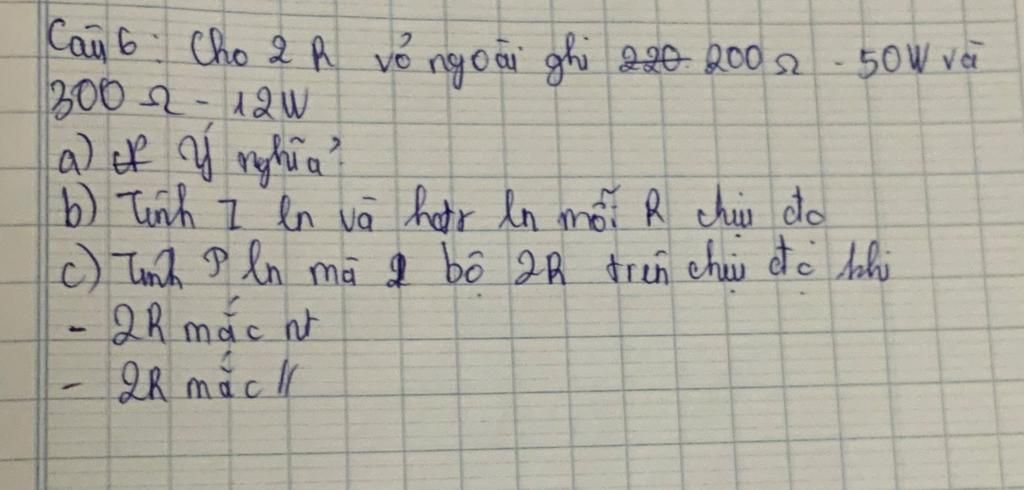 Câu 6: Cho 2 R vỏ ngoài ghi 220 200Ω - 50W và
300Ω - 12W
a) Ý nghĩa?
b) Tính I ln và hđt ln mỗi R chịu đc
c) Tính P ln mà bộ 2R trên chịu đc khi
- 2R mắc nt
- 2R mắc //